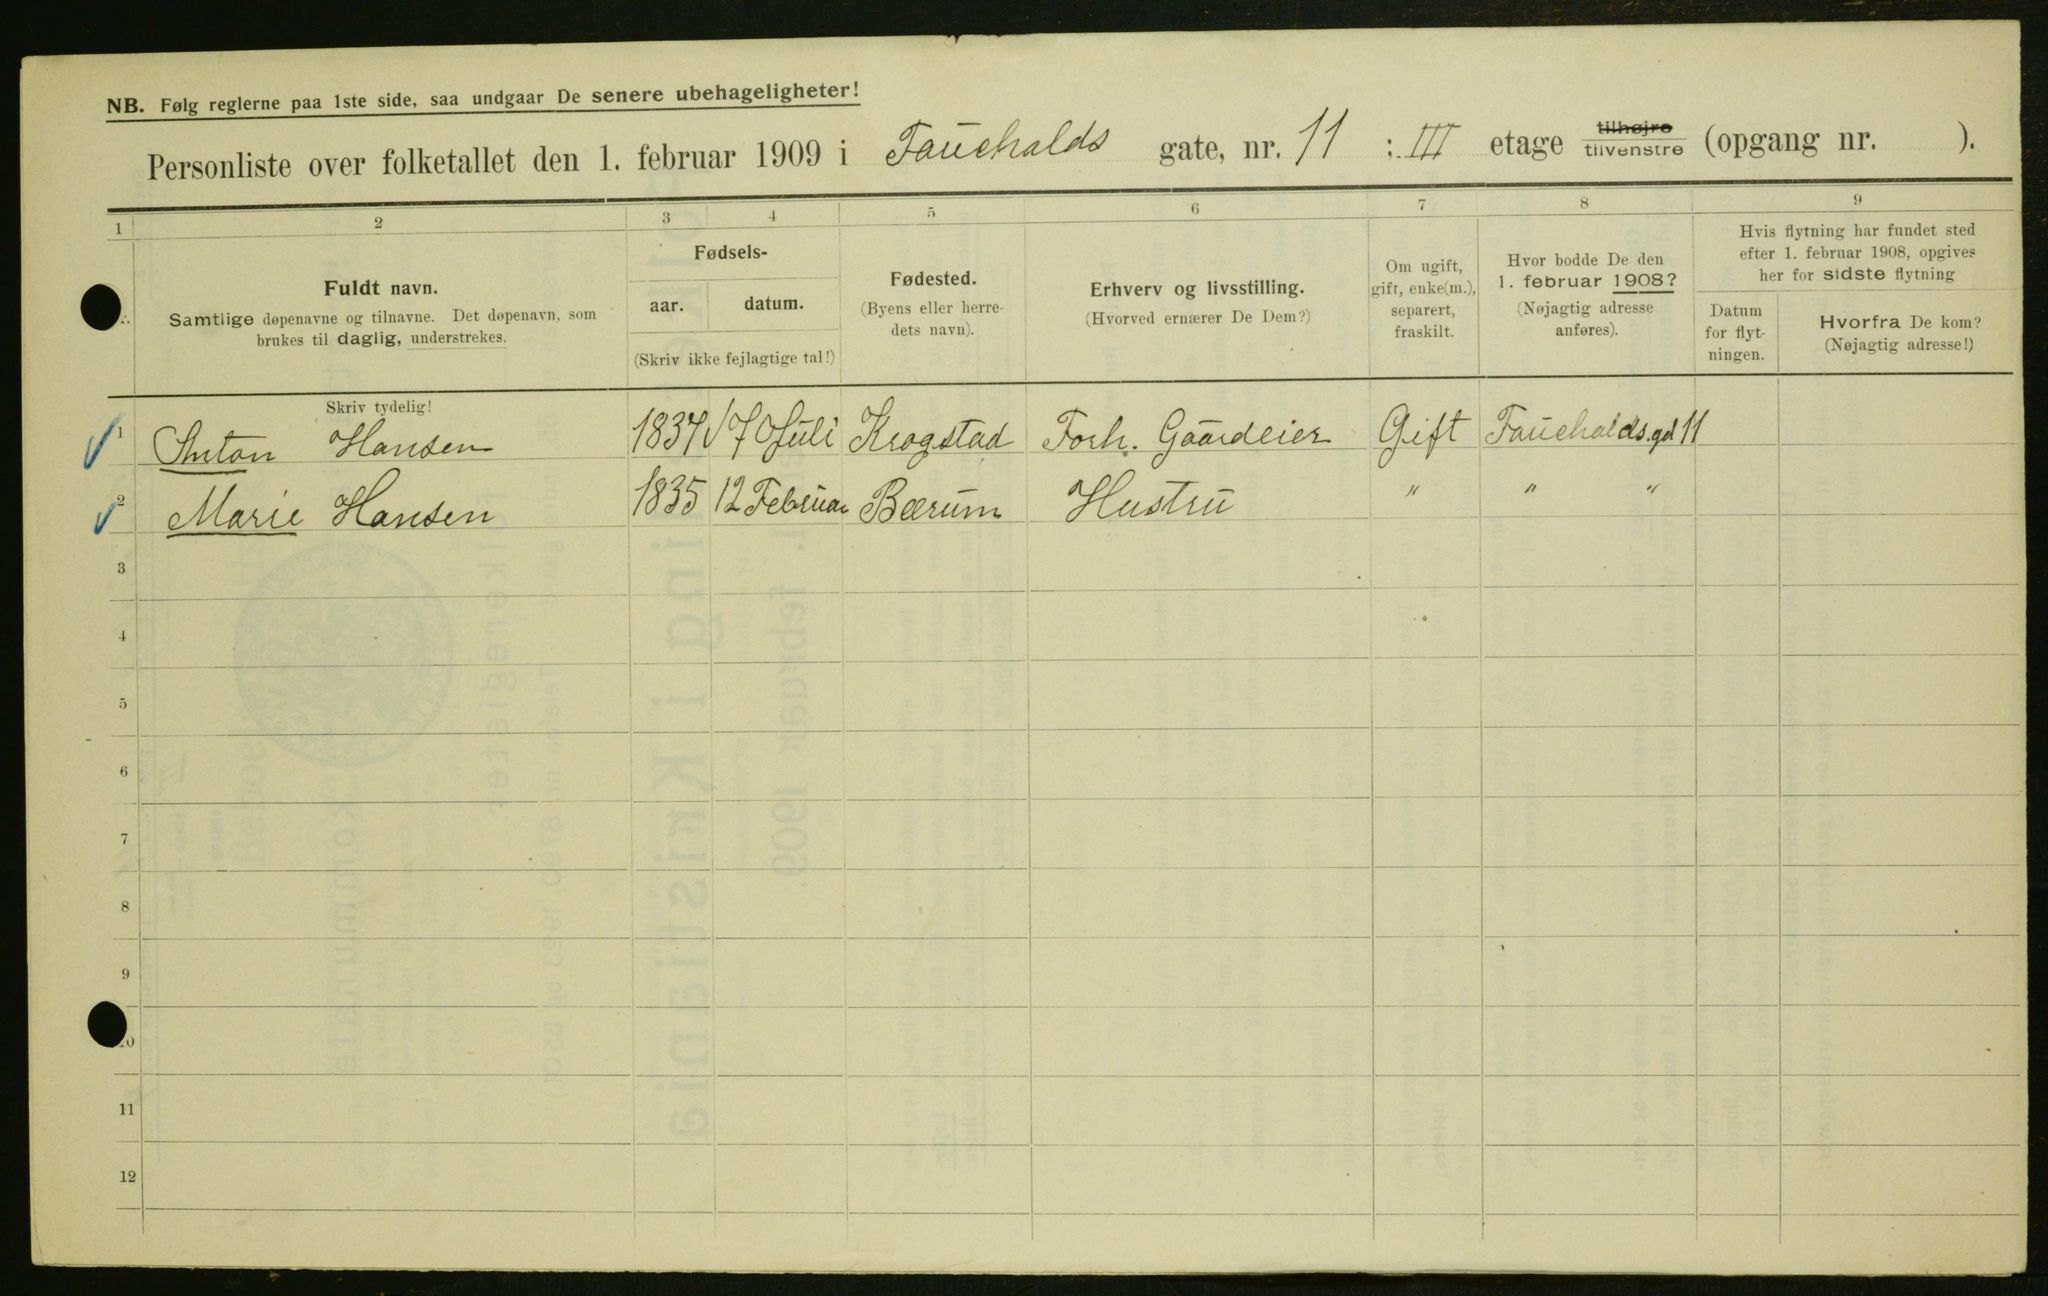 NB. Følg reglerne paa 1ste side, saa undgaar De senere ubehageligheter!
Personliste over folketallet den 1. februar 1909 i Fauchalds gate, nr. 11 ; III etage tilhøjre tilvenstre (opgang nr. ).
1 2 3 4 5 6 7 8 9
Fuldt navn.
Samtlige døpenavne og tilnavne. Det døpenavn, som
brukes til daglig, understrekes.
Fødsels-
aar. datum.
(Skriv ikke fejlagtige tal!)
Fødested.
(Byens eller herre-
dets navn).
Erhverv og livsstilling.
(Hvorved ernærer De Dem?)
Om ugift,
gift, enke(m.),
separert,
fraskilt.
Hvor bodde De den
1. februar 1908?
(Nøjagtig adresse
anføres).
Hvis flytning har fundet sted
efter 1. februar 1908, opgives
her for sidste flytning
Datum
for flyt-
ningen.
Hvorfra De kom?
(Nøjagtig adresse!)
Skriv tydelig!
1 Anton Hansen 1834 17 Juli Krogstad Forh. Gaardeier Gift Fauchalds.gd 11
2 Marie Hansen 1835 12 Februar Bærum Hustru " " "
3
4
5
6
7
8
9
10
11
12